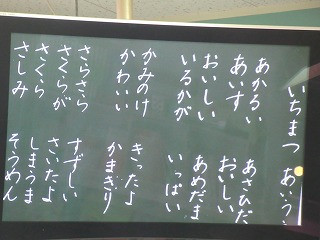 いちまつ あいう
あかるい あさひだ
あいす おいしい
おいしい あめだま
いるかが いっぱい
かみのけ きったよ
かわいい かまきり
さらさら すずしい
さくらが さいたよ
さくら しまうま
さしみ そうめん